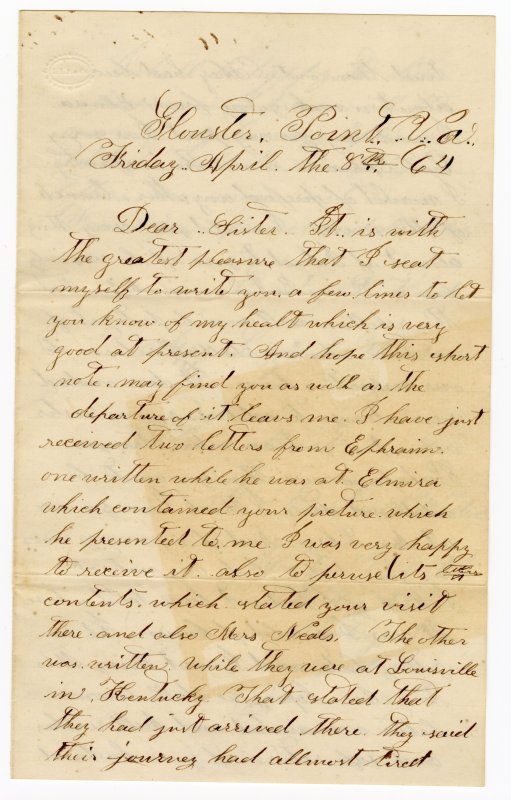 Glouster, Point, Va.,
Friday, April. the 8th. 64
Dear. Sister. It. is with
the greatest pleasure that I seat
myself to write you, a few lines to let
you know of my healt which is very
good at present. And hope this short
note. may find you as well as the
departure of it leavs me. I have just
received two letters from Ephraim.
one written while he was at. Elmira
which contained your picture. which
he presented to me. I was very happy
to receive it. also to peruse its
contents. which stated your visit
there. and also Mrs Neals. The other
was written while they were at Louisville
in, Kentucky. That stated that
they had just arrived there. they said
their journey had allmost tired